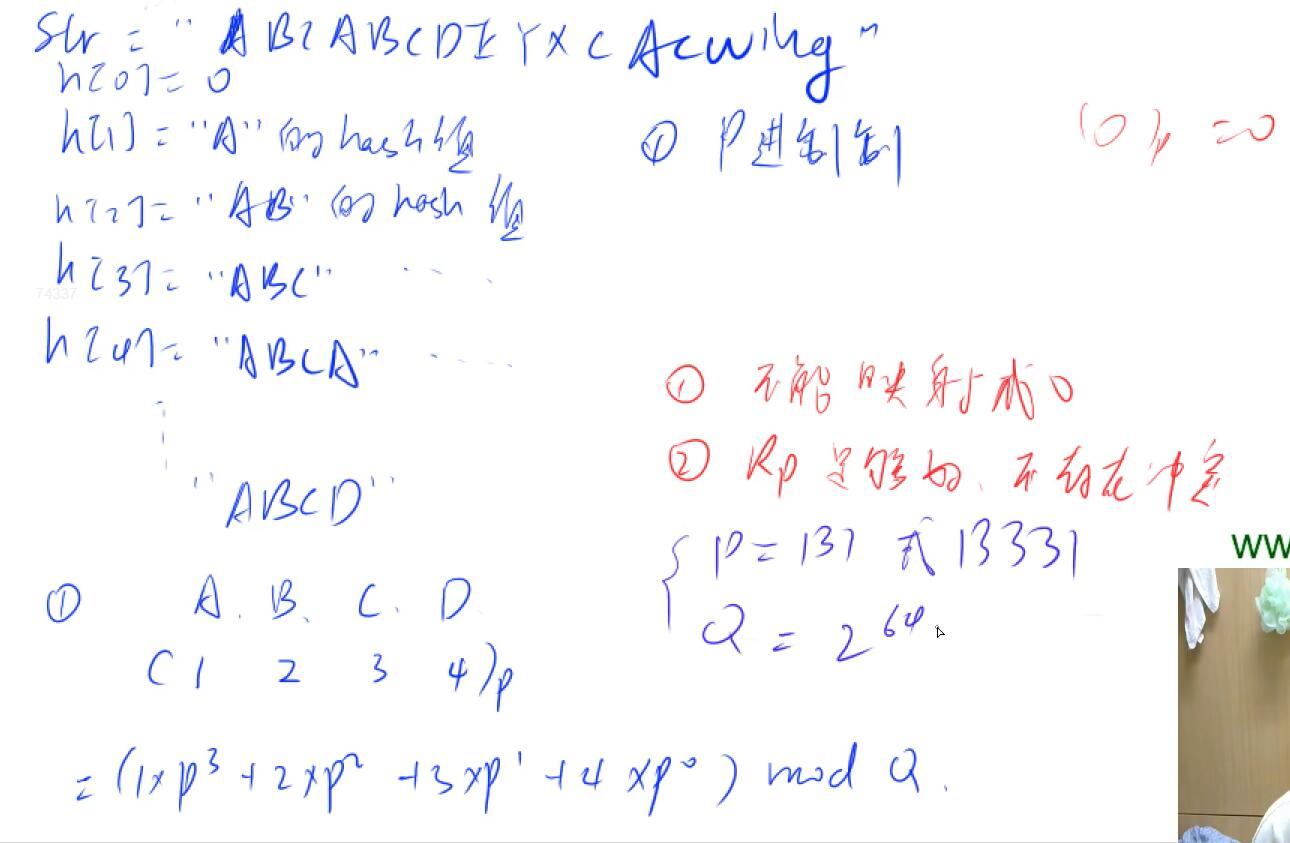 Str = "ABCABCDEYXCAcwing"
h[0] = 0
h[1] = "A" 的 hash 值
① P进制制
(0)p = 0
h[2] = "AB" 的 hash 值
h[3] = "ABC" ....
74337
h[4] = "ABCA" ....
① 不能映射成0
② Rp 足够好、不存在冲突
"ABCD"
{ P = 131 或 13331
Q = 2^64.
WW
① A. B. C. D
(1 2 3 4)p
= (1×p^3 + 2×p^2 + 3×p^1 + 4×p^0) mod Q.